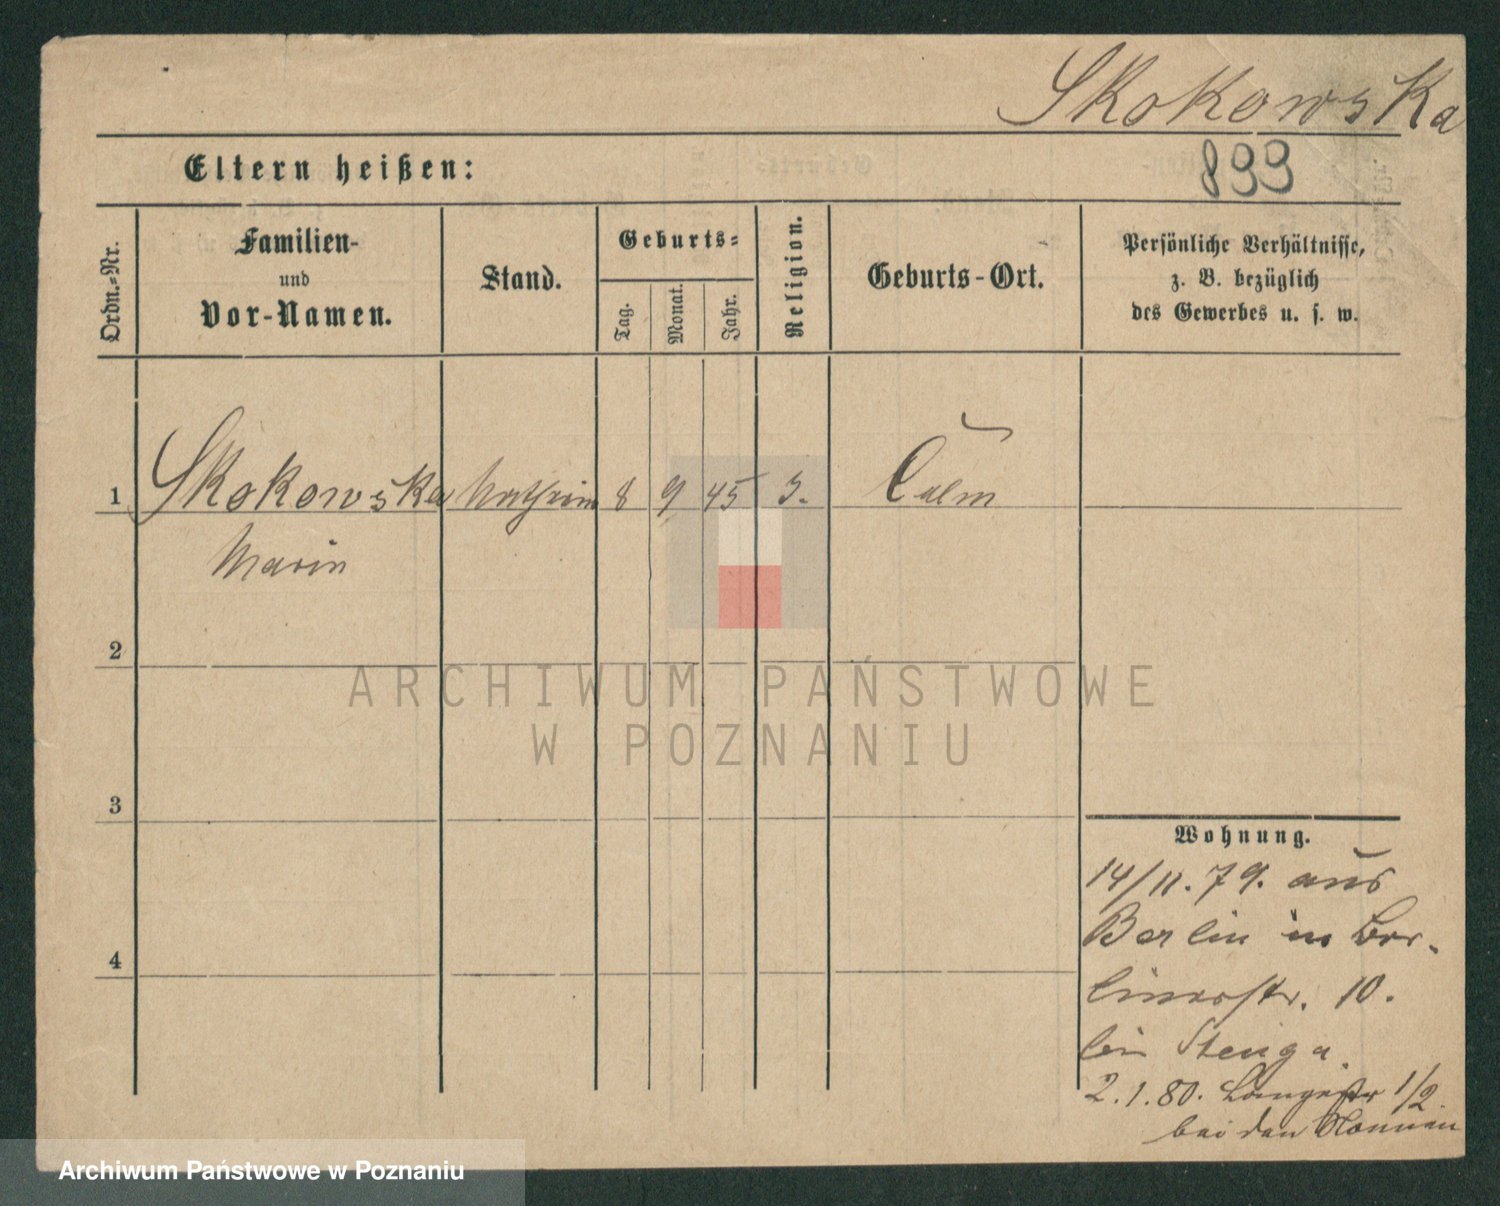 Skokowska
899
Eltern heißen:
Ordn.-Nr.
Familien-
und
Vor-Namen.
Stand.
Geburts-
Tag.
Monat.
Jahr.
Religion.
Geburts-Ort.
Persönliche Verhältnisse,
z. B. bezüglich
des Gewerbes u. s. w.
1
Skokowska
8
9
45
Culm
Marie
2
3
4
ARCHIWUM PAŃSTWOWE
W POZNANIU
Wohnung.
14/11.79. aus
Berlin in Ber-
linerstr. 10.
bei Stenga
2.1.80. Langestr 1/2
bei den Nonnen
Archiwum Państwowe w Poznaniu